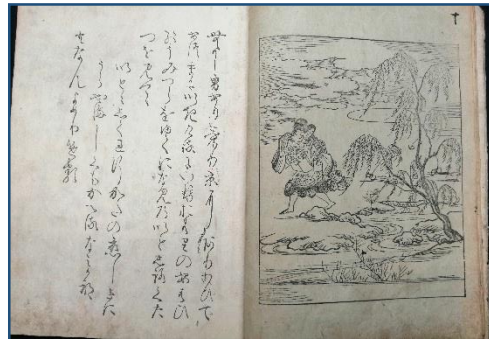 むかし男ありけり京にありわひて
あつまにいきけるに伊勢おはりのあはひ
のうみつらをゆくに浪のいと白くた
つを見て
いとゝしく過行かたの恋しきに
うら山しくもかへる浪かな
となんよめりける